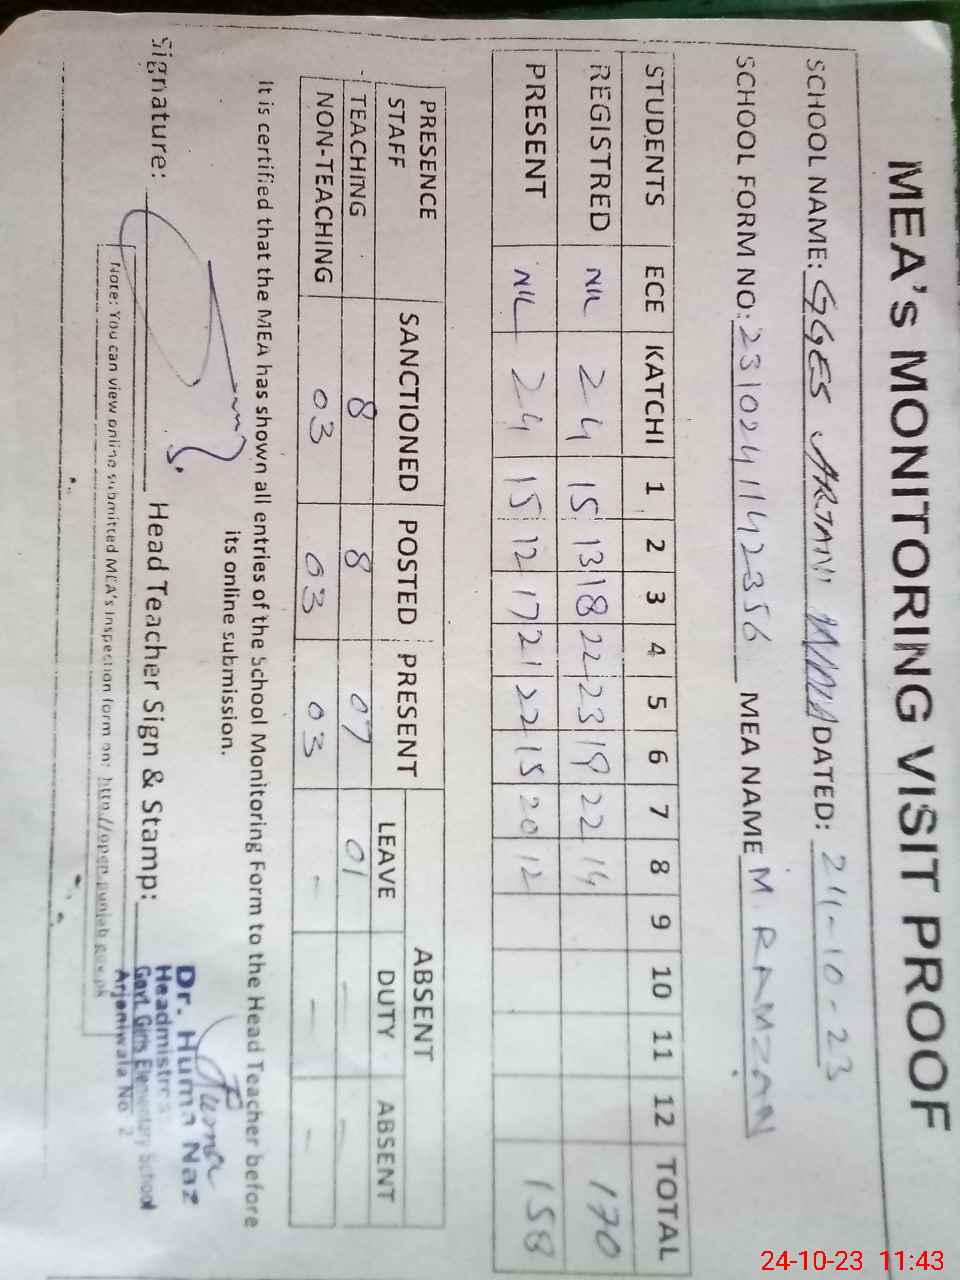 MEA's MONITORING VISIT PROOF
SCHOOL NAME: GGES ARJANI WALA DATED: 24-10-23
SCHOOL FORM NO: 2310241142356 MEA NAME M. RAMZAN
STUDENTS ECE KATCHI 1 2 3 4 5 6 7 8 9 10 11 12 TOTAL
REGISTRED NIL 24 15 13 18 22 23 19 22 14 170
PRESENT NIL 24 15 12 17 21 22 15 20 12 158
PRESENCE STAFF SANCTIONED POSTED PRESENT ABSENT
LEAVE DUTY ABSENT
TEACHING 8 8 07 01 - -
NON-TEACHING 03 03 03 - - -
It is certified that the MEA has shown all entries of the School Monitoring Form to the Head Teacher before
its online submission.
Signature: Head Teacher Sign & Stamp:
Huma
Dr. Huma Naz
Headmistress
Govt. Girls Elementary School
Arjaniwala No 2
Note: You can view online submitted MEA's inspection form on: http://open.punjab.gov.pk
24-10-23 11:43